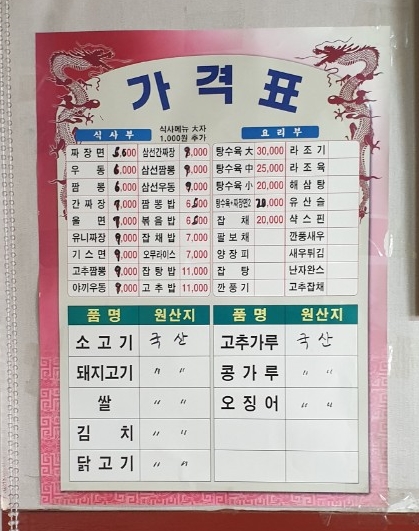 가격표
식사부
식사메뉴 大자
1,000원 추가
요리부
짜장면 5,500 삼선간짜장 9,000 탕수육 大 30,000 라조기
우동 6,000 삼선짬뽕 9,000 탕수육 中 25,000 라조육
짬뽕 6,000 삼선우동 9,000 탕수육 小 20,000 해삼탕
간짜장 7,000 짬뽕밥 6,500 탕수육+짜장면2 유산슬
울면 7,000 볶음밥 6,500 잡채 20,000 샥스핀
유니짜장 9,000 잡채밥 7,000 팔보채 깐풍새우
기스면 9,000 오무라이스 7,000 양장피 새우튀김
고추짬뽕 9,000 잡탕밥 11,000 잡탕 난자완스
야끼우동 9,000 고추밥 11,000 깐풍기 고추잡채
품명 원산지 품명 원산지
소고기 국산 고추가루 국산
돼지고기 〃 〃 콩가루 〃 〃
쌀 〃 〃 오징어 〃 〃
김치 〃 〃
닭고기 〃 〃